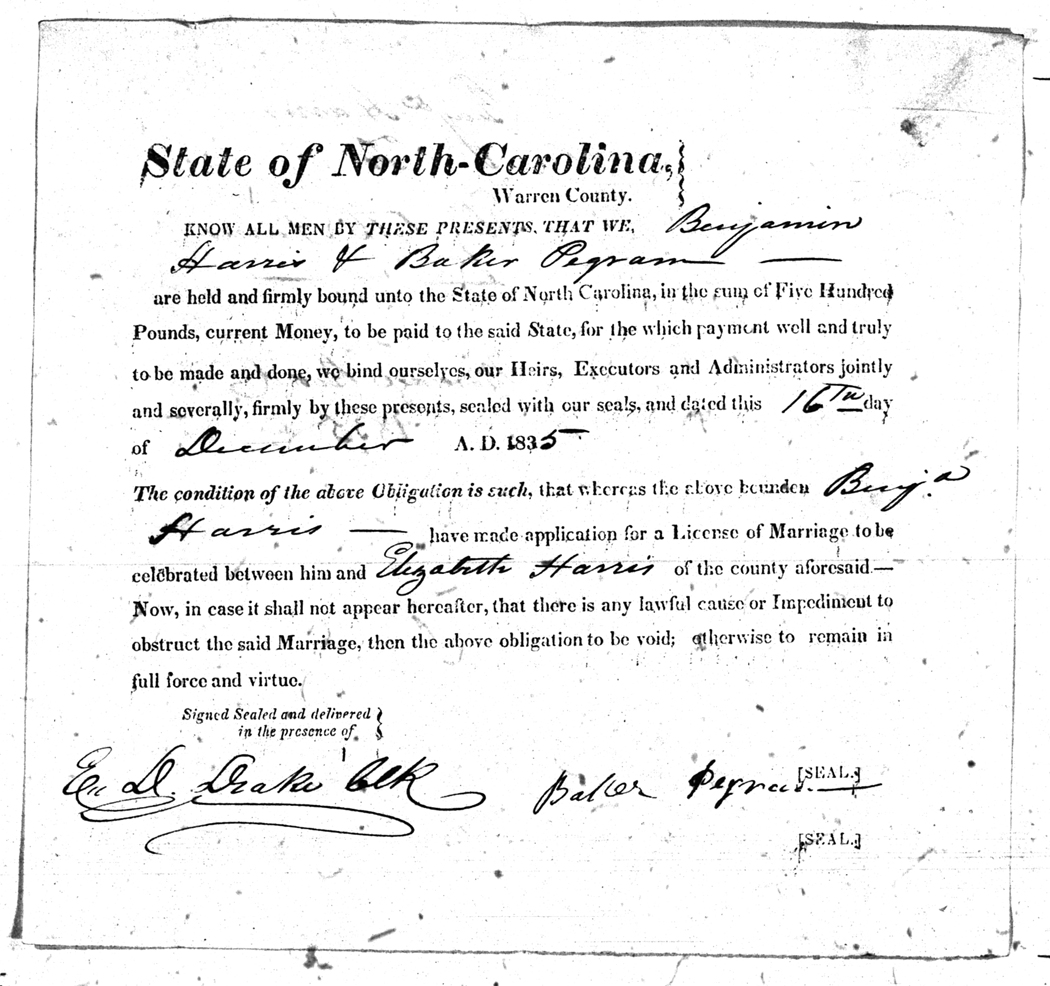 State of North-Carolina,
Warren County.
KNOW ALL MEN BY THESE PRESENTS, THAT WE, Benjamin
Harris & Baker Pegram —
are held and firmly bound unto the State of North Carolina, in the sum of Five Hundred
Pounds, current Money, to be paid to the said State, for the which payment well and truly
to be made and done, we bind ourselves, our Heirs, Executors and Administrators jointly
and severally, firmly by these presents, sealed with our seals, and dated this 16Th day
of December A. D. 1835
The condition of the above Obligation is such, that whereas the above bounden Benja
Harris — have made application for a License of Marriage to be
celebrated between him and Elizabeth Harris of the county aforesaid.—
Now, in case it shall not appear hereafter, that there is any lawful cause or Impediment to
obstruct the said Marriage, then the above obligation to be void; otherwise to remain in
full force and virtue.
Signed Sealed and delivered
in the presence of
D. Drake Clk
Baker Pegram [SEAL.]
[SEAL.]